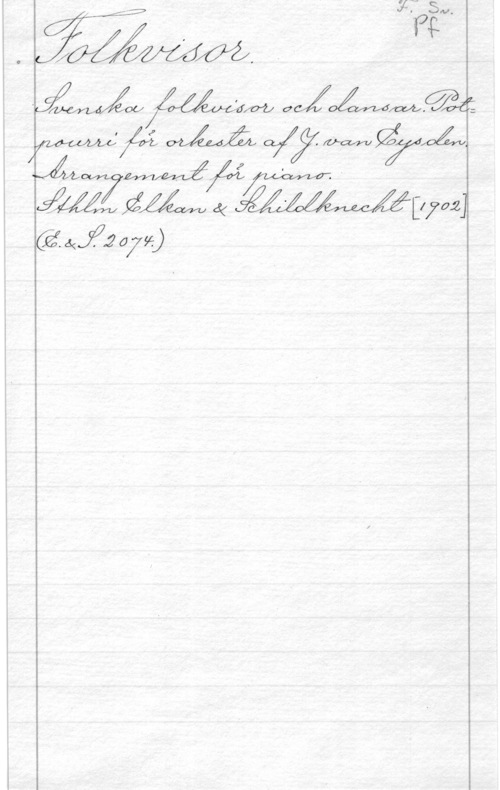 F. Sv.
Pf
Folkvisor.
Svenska folkvisor och dansar. Pot-
pourri för orkester af J. van Eysden.
Arrangement för piano.
Sthlm Elkan & Schildknecht [1902]
(E. & S. 2074.)